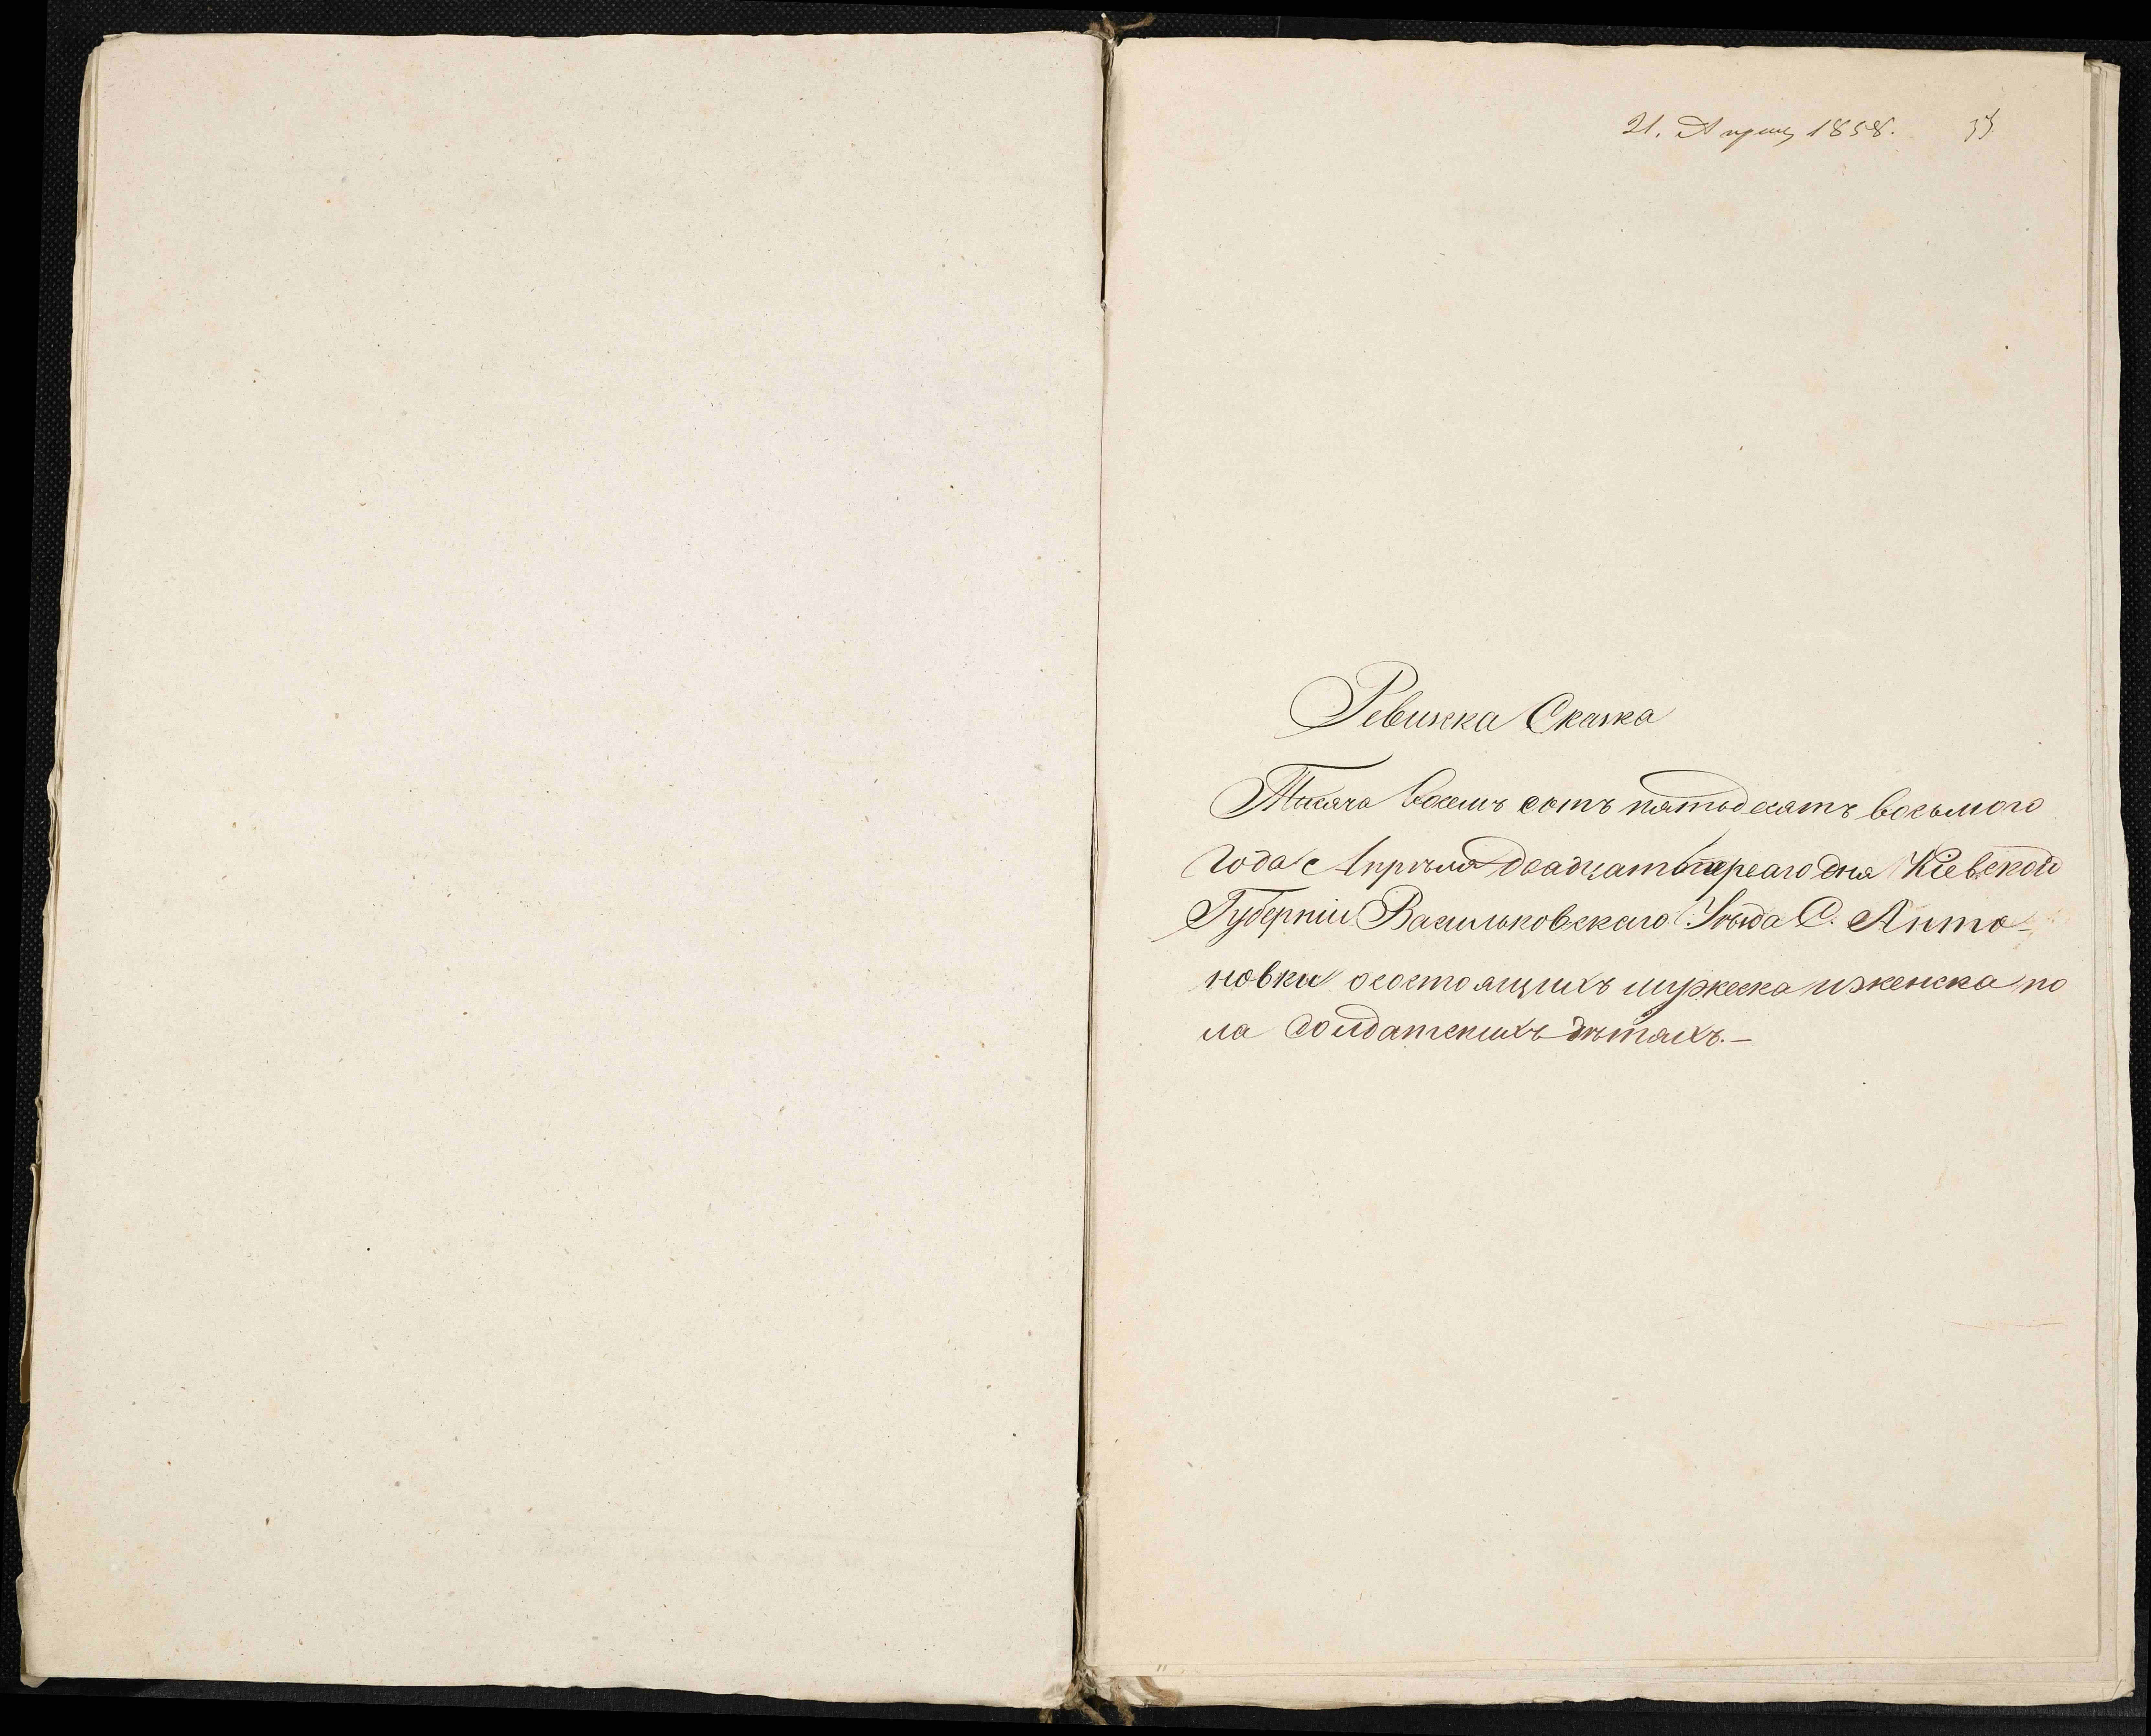 21. Апрѣл 1858.
Ревизка Сказка
Тисяча восемъ сотъ пятьдесятъ восьмого
Года Апрѣля двадцать перваго дня Кіевской
Губерніи Васильковскаго Уѣзда С. Анто-
новки осостоящихъ мужеска иженска по
ла Солдатскихъ дѣтяхъ.—